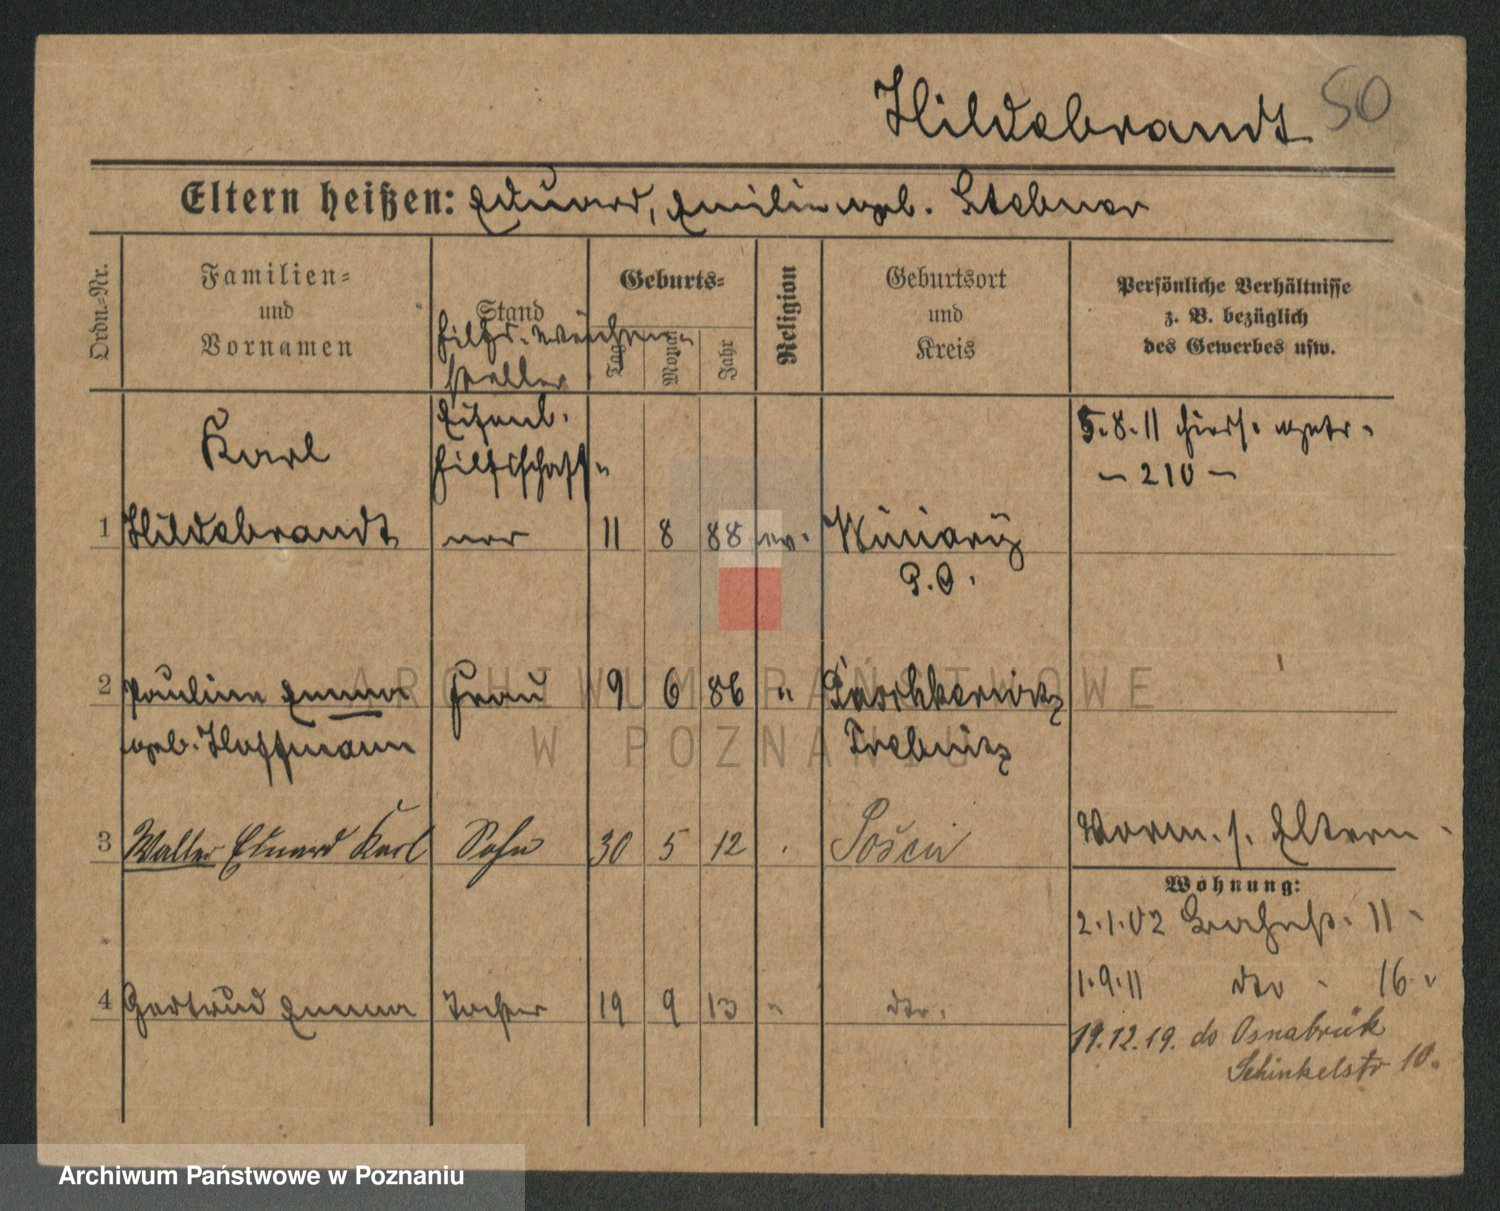 Hildebrandt 50
Eltern heißen: Eduard, Emilie geb. Stebner
Ordn.=Nr.
Familien=
und
Vornamen
Stand
Geburts=
Tag
Monat
Jahr
Religion
Geburtsort
und
Kreis
Persönliche Verhältnisse
z. B. bezüglich
des Gewerbes usw.
Hilfs. weichen
steller
Eisenb.
Hilfsschaff
Karl
1 Hildebrandt ner 11 8 88 ev. Winiary
P.O.
5.8.11 hiers. getr.
- 210 -
2 Pauline Emma Frau 9 6 86 " Paschkerwitz
geb. Hoffmann Trebnitz
3 Walter Eduard Karl Sohn 30 5 12 Posen
Vorm. s. Eltern
Wohnung:
2.1.02 Bahnst. 11
4 Gertrud Emma Tochter 19 9 13 " do.
1.9.11 do " 16
19.12.19. do Osnabrük
Schinkelstr 10.
ARCHIWUM PAŃSTWOWE
W POZNANIU
Archiwum Państwowe w Poznaniu